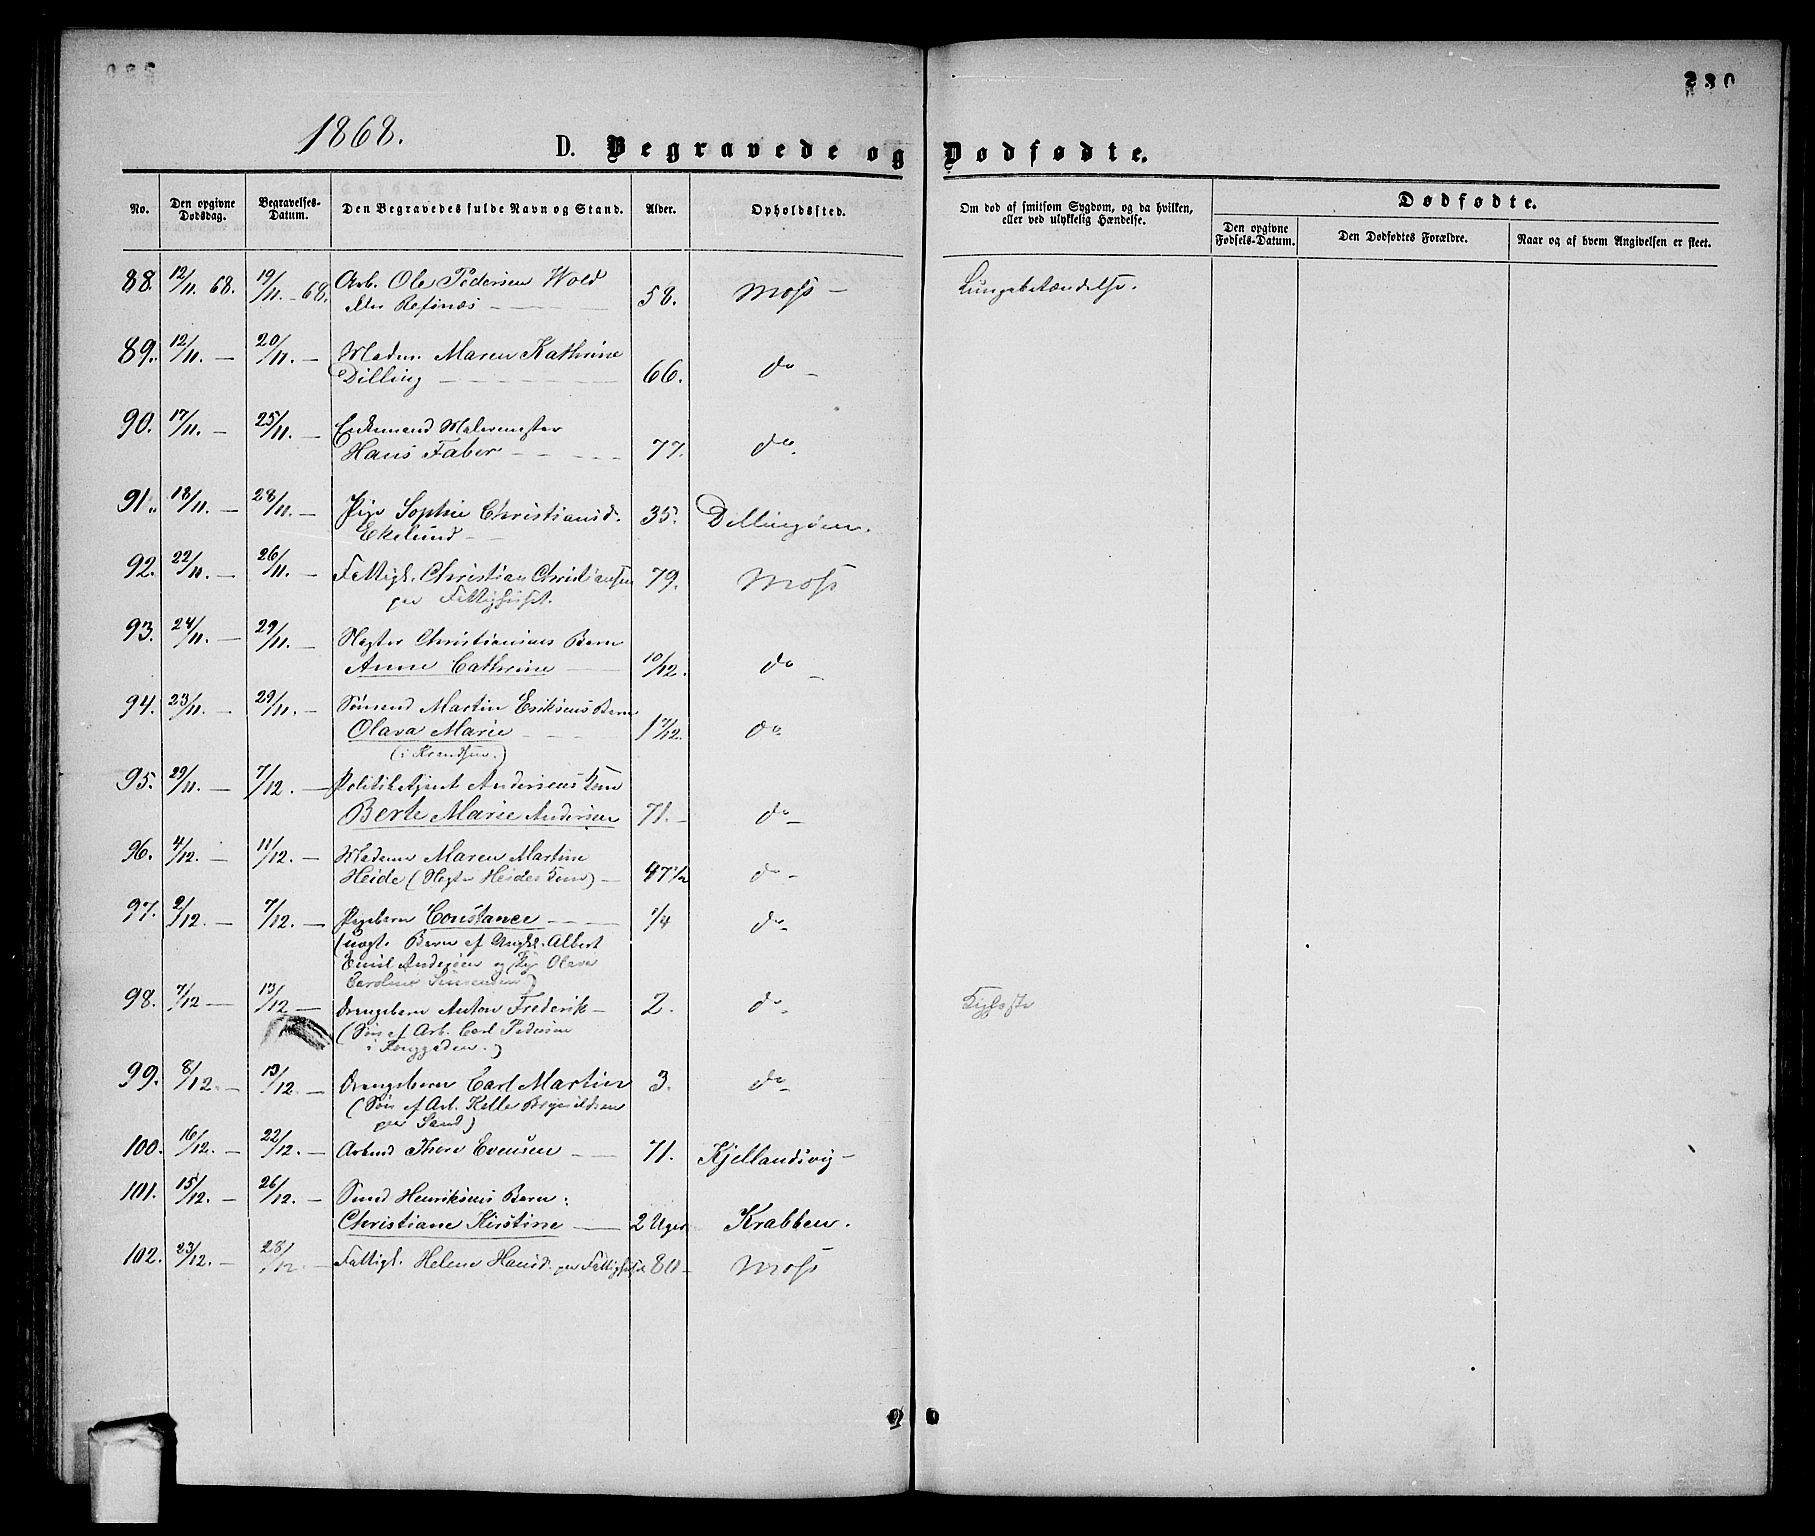 230
1868.
D. Begravede og Dødfødte.
No.
Den opgivne Dødsdag.
Begravelses-Datum.
Den Begravedes fulde Navn og Stand.
Alder.
Opholdssted.
Om død af smitsom Sygdom, og da hvilken, eller ved ulykkelig Hændelse.
Dødfødte.
Den opgivne Fødsels-Datum.
Den Dødfødtes Forældre.
Naar og af hvem Angivelsen er skeet.
88. 12/11. 68. 19/11 - 68. Arb. Ole Pedersen Wold
Refsnæs — 58. Moss — Lungebetændelse.
89. 12/11. — 20/11. — Madm. Maren Kathrine
Dilling — 66. do —
90. 17/11. — 25/11. — Enkemand Malermester
Hans Faber — 77. do.
91. 18/11. — 28/11. — Pige Sophie Christiansd.
Ekelund — 35. Dillingøen.
92. 22/11. — 26/11. — Fattigl. Christian Christiansen 79. Moss
paa Fattighuset.
93. 24/11. — 29/11. — Slagter Christiansens Barn
Anne Cathrine — 10/12. do —
94. 23/11. — 29/11. — Sømand Martin Eriksens Barn
Olava Marie — 1 7/12. do
95. 29/11. — 7/12. — Politibetjent Andersens Kone
Berte Marie Andersen 71. — do —
96. 4/12. — 11/12. — Madame Maren Martine
Heide (Slagter Heides Kone) — 47 1/2 do -
97. 2/12. — 7/12. — Pigebarn Constance — 1/4 do -
(uægt. Barn af Ungkl. Albert
Emil Andersen og Pige Olava
Caroline
98. 7/12 — 13/12 — Drengebarn Anton Frederik — 2. do - Kighoste
(Søn af Arb. Carl Pedersen
i
99. 8/12. — 13/12. — Drengebarn Carl Martin 3. do —
(Søn af Arb. Kelle Brynildsen
paa Sand)
100. 16/12. — 22/12. — Arbmd Thore Evensen — 71. Kjellandsvig —
101. 15/12. — 26/12. — Smed Henriksens Barn:
Christiane Kirstine — 2 Uger Krabben.
102. 23/12. — 28/12. — Fattigl. Helene Hansd. paa Fattighuset 80 — Moss